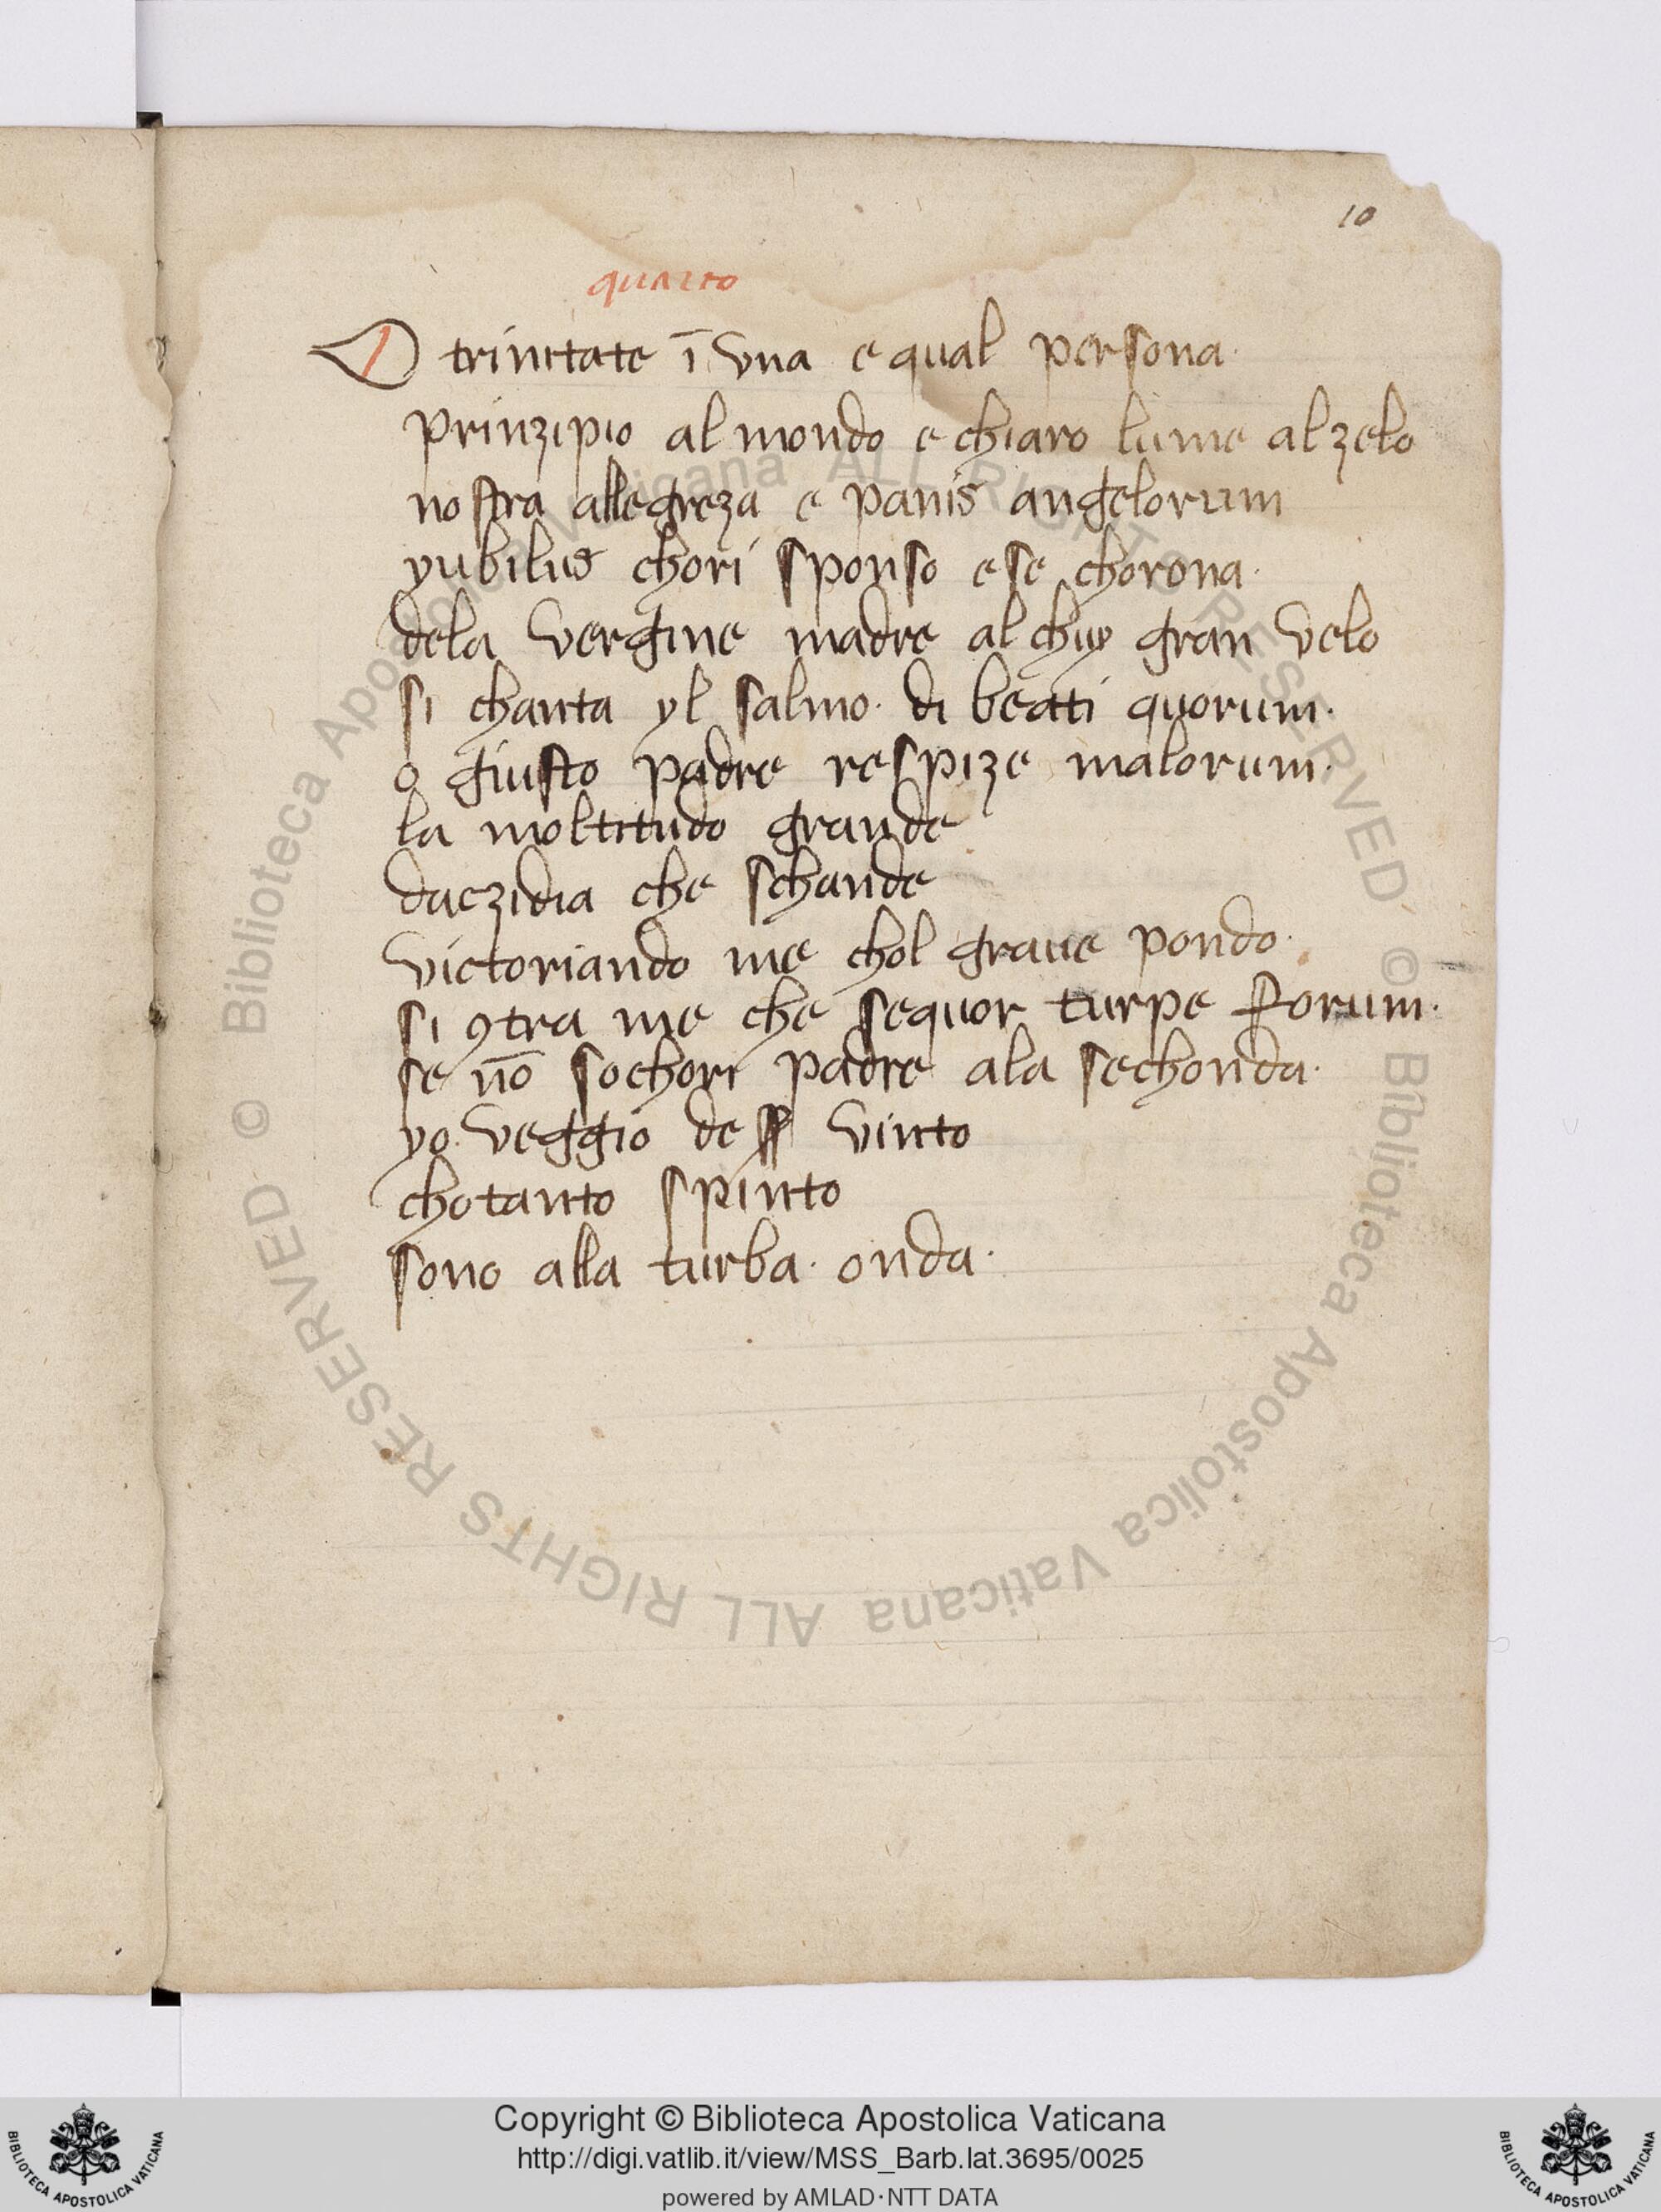 10
quarto
O trinitate ī vna e qual persona·
prinzipio al mondo e chiaro lume al zelo
nostra allegreza e panis angelorum
yubilus chori sponso e se chorona·
dela vergine madre al chuy gran velo
si chanta yl salmo· di beati quorum·
o giusto padre respize malorum·
la moltitudo grande
daczidia che schande
victoriando me chol graue pondo·
si ꝯtra me che sequor turpe forum·
se nō sochori padre ala sechonda·
yo veggio de vinto
cho tanto spinto
sono alla turba· onda·
© Biblioteca Apostolica Vaticana ALL RIGHTS RESERVED © Biblioteca Apostolica Vaticana ALL RIGHTS RESERVED
Copyright © Biblioteca Apostolica Vaticana
http://digi.vatlib.it/view/MSS_Barb.lat.3695/0025
powered by AMLAD·NTT DATA
BIBLIOTECA APOSTOLICA VATICANA
BIBLIOTECA APOSTOLICA VATICANA